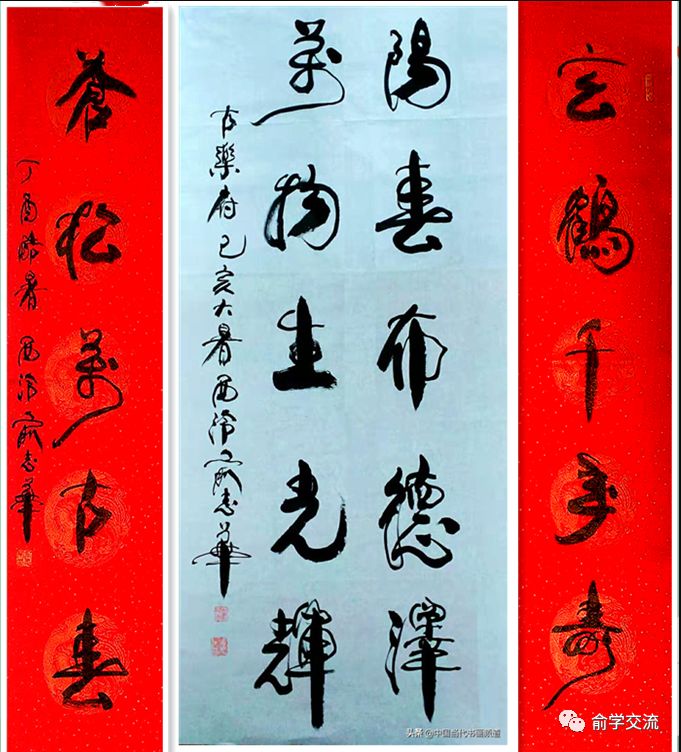 玄鶴千年壽
陽春布德澤
萬物生光輝
古樂府己亥大暑西泠志華
蒼松萬古春
丁酉暑西泠志華
头条@中国当代书画频道
俞学交流